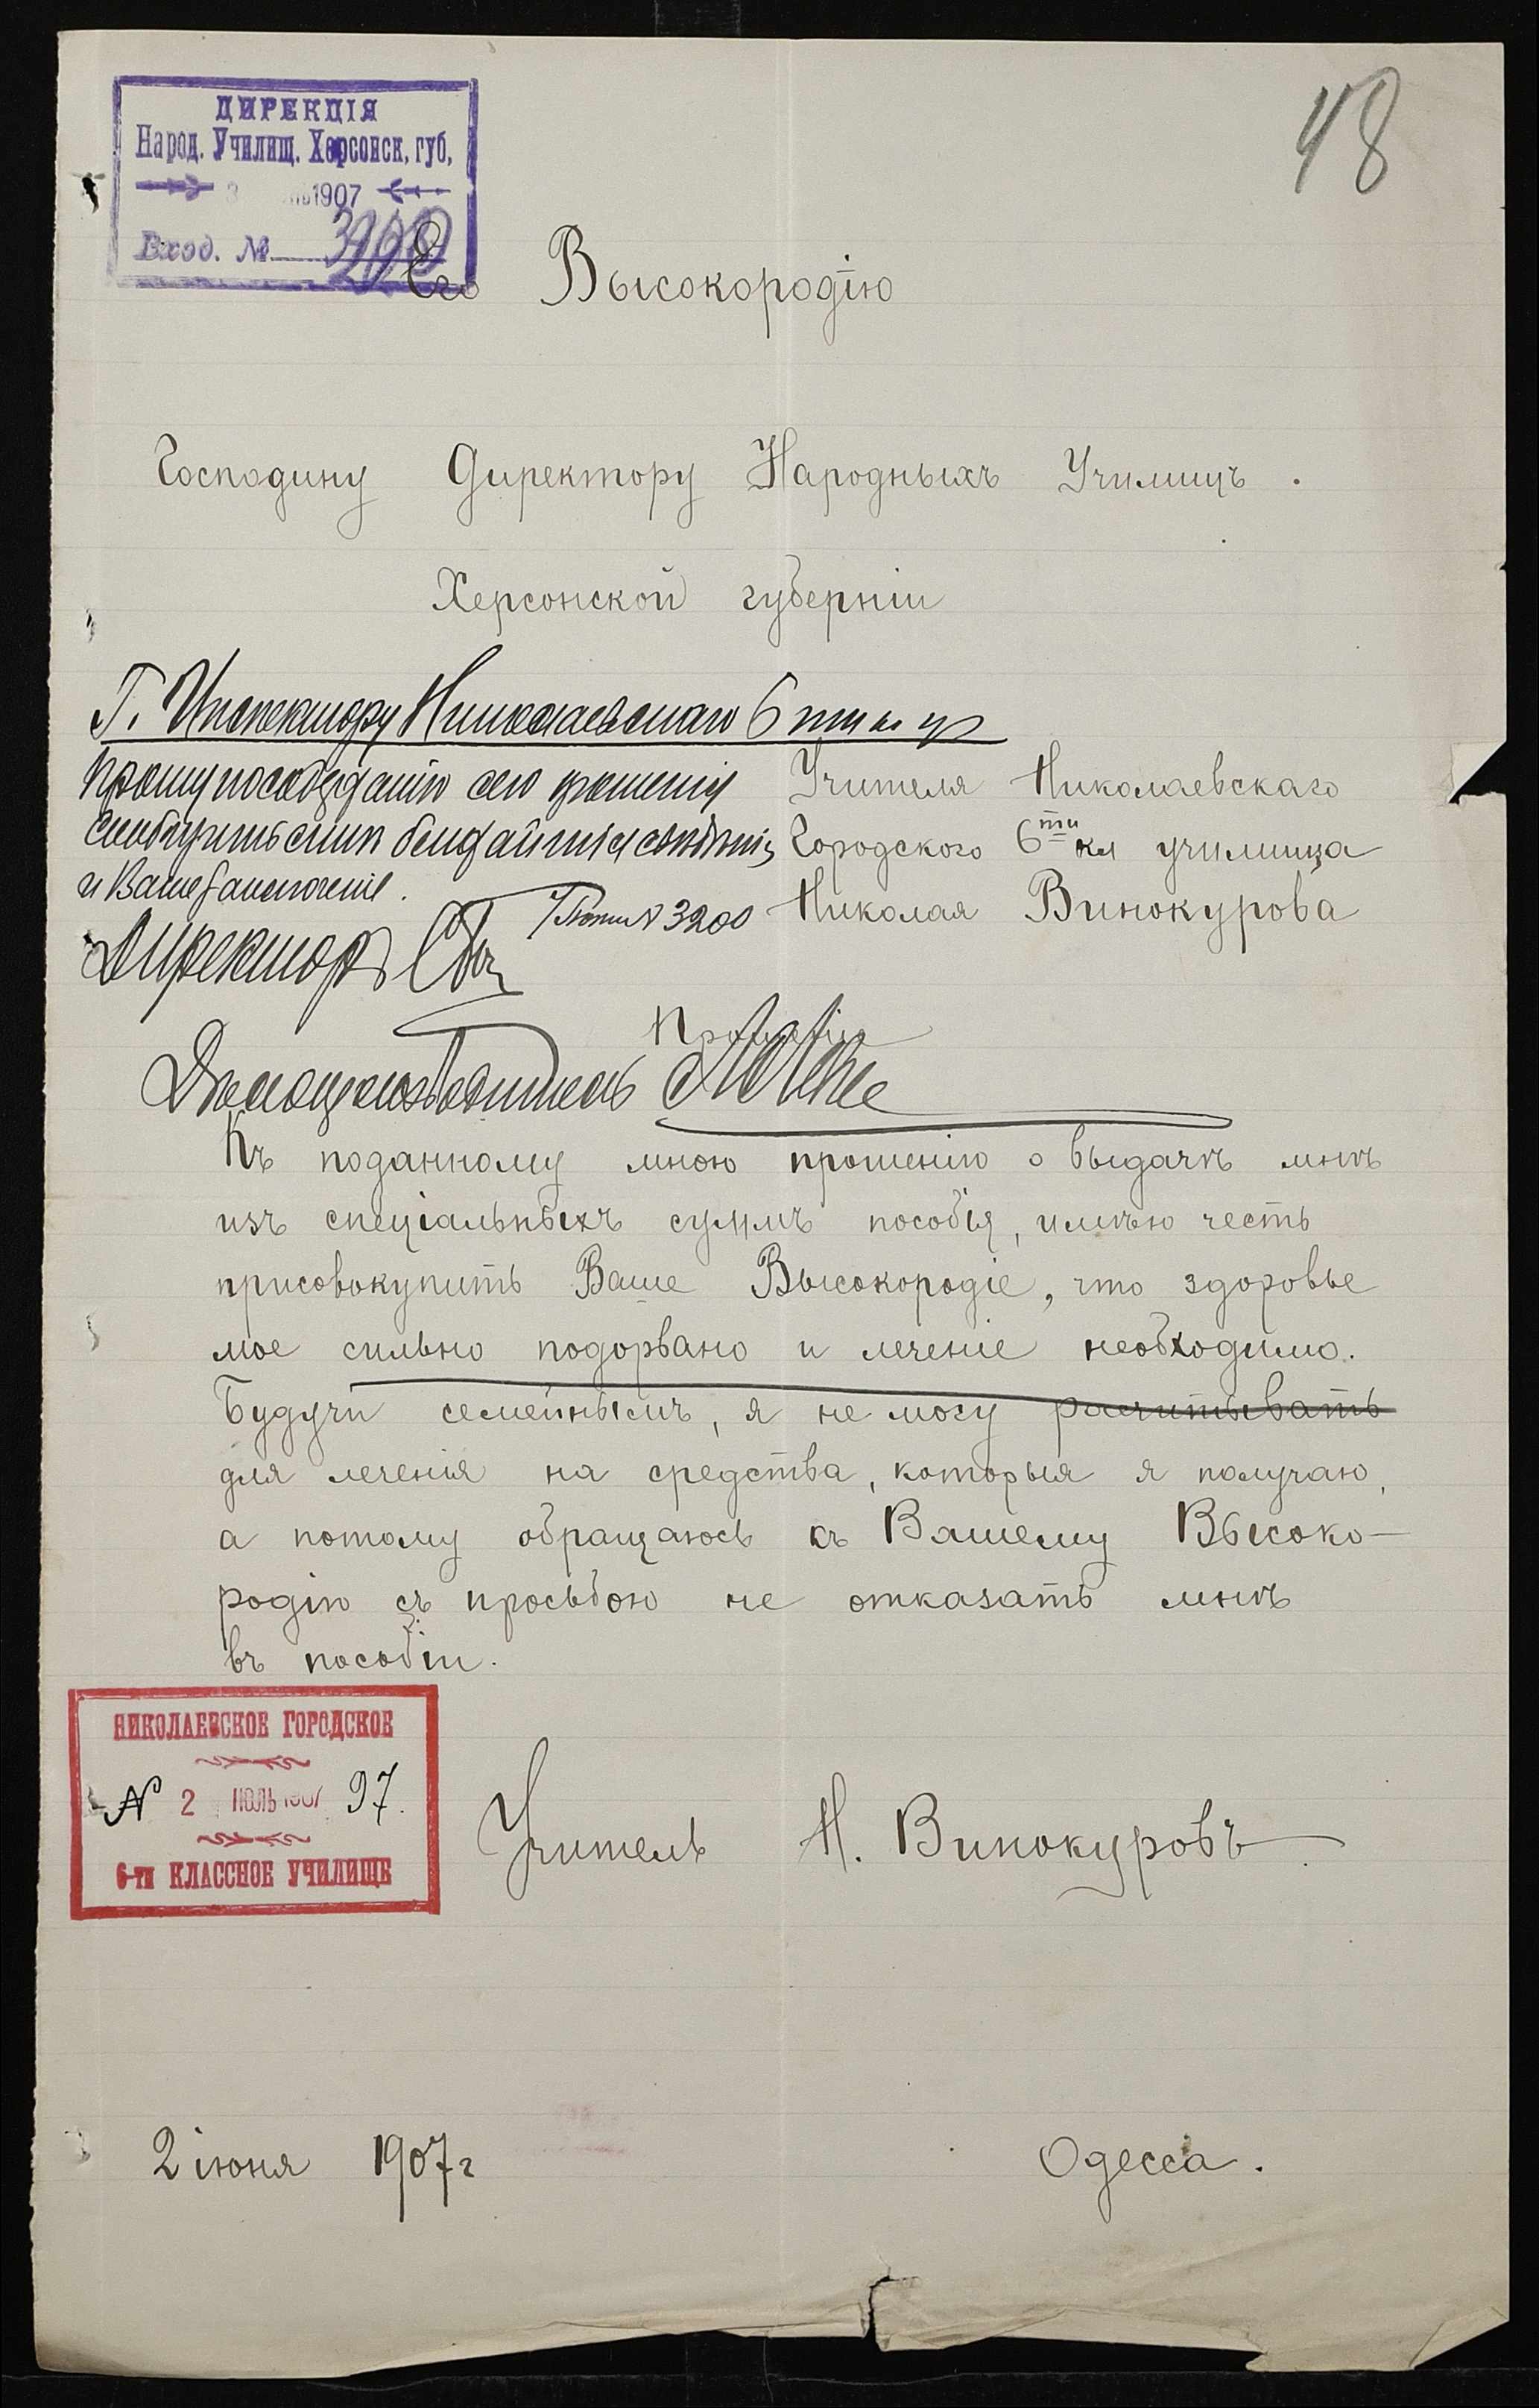 48
ДИРЕКЦІЯ
Народ. Училищ. Херсонск. губ.
1907
Вход. №
Его Высокородію
Господину Директору Народныхъ Училищъ.
Херсонской губерніи
Г. Инспектору Николаевскаго 6 ти кл уч
Прошу по сей прошенія
сообщить мнѣ
и Ваше заключеніе.
№ 3200
Директоръ
Дѣлопроизводитель
Учителя Николаевскаго
Городского 6ти кл училища
Николая Винокурова
Прошеніе
Къ поданному мною прошенію о выдачѣ мнѣ
изъ спеціальныхъ суммъ пособія, имѣю честь
присовокупить Ваше Высокородіе, что здоровье
мое сильно подорвано и леченіе необходимо.
Будучи семейнымъ, я не могу расчитывать
для леченія на средства, которыя я получаю,
а потому обращаюсь къ Вашему Высоко-
родію съ просьбою не отказать мнѣ
въ пособіи.
НИКОЛАЕВСКОЕ ГОРОДСКОЕ
№ 2 ІЮЛЬ 1907 97.
6-ти КЛАССНОЕ УЧИЛИЩЕ
Учитель Н. Винокуровъ
2 іюня 1907 г
Одесса.